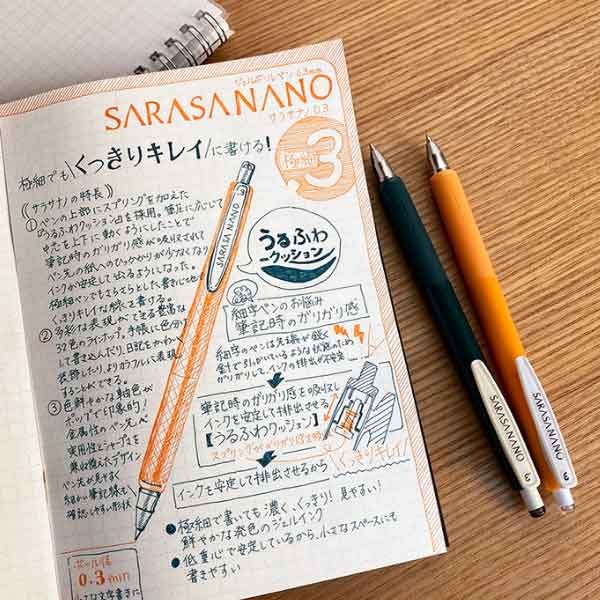 ジェルボールペン 0.3mm
SARASA NANO
サラサナノ 0.3
極細でも\くっきりキレイ/に書ける!
極細 0.3
《サラサナノの特長》
①ペンの上部にスプリングを加えた
「うるふわクッション」を採用。筆圧に応じて
中芯を上下に動くようにしたことで
筆記時のガリガリ感が吸収されて
ペン先の紙へのひっかかりが少なくなり
インクが安定して出るようになった。
極細ペンでもさらさらとした書き心地で
くっきりキレイな線で書ける。
②多彩な表現ができる豊富な
32色のラインナップ。手帳に色分け
して書き込んだり、日記をかわいく
装飾したり、よりカラフルに表現
することができる。
③色鮮やかな軸色が
ポップで印象的!
金属性のペン先へ
実用性とシャープさを
兼ね備えたデザイン
ペン先が見やすく
細かい筆記線も
確認しやすい形状
ボール径
0.3mm
小さな文字書きに
SARASA NANO
3
うるふわ
クッション
細字ペンのお悩み
筆記時のガリガリ感
細字のペンは先端が鋭く
針で引っかいているような状態のため
ガリガリして、インクの排出が不安定
筆記時のガリガリ感を吸収し
インクを安定して排出させる
【うるふわクッション】
スプリングがガリガリ感を吸収
インクを安定して排出させるから\くっきりキレイ/
●極細で書いても濃く、くっきり!見やすい!
鮮やかな発色のジェルインク
●低重心で安定しているから、小さなスペースにも
書きやすい
SARASA NANO 3
SARASA NANO 3